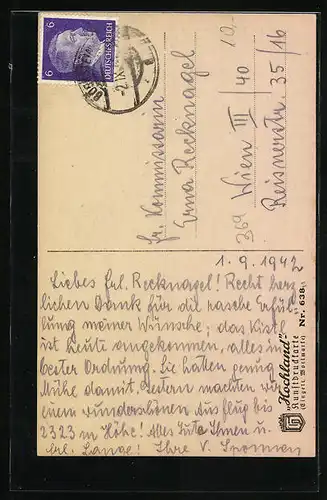 6 DEUTSCHES REICH 6
10,-
Fr. Kommissarin
Erna Recknagel
Wien III/40
Reisnerstr. 35/16
369
1. 9. 1942
Liebes Frl. Recknagel! Recht herz-
lichen Dank für die rasche Erfül-
lung meiner Wünsche; das Kistl
ist heute angekommen, alles in
bester Ordnung. Sie hatten genug
Mühe damit. Gestern machten wir
einen wunderschönen Ausflug bis
2323 m Höhe! Alles Gute Ihnen u.
Frl. Lange! Ihre V.
"Hochland"
Kunstdruckkarte
(Eingetr. Wortmarke)
Nr. 638